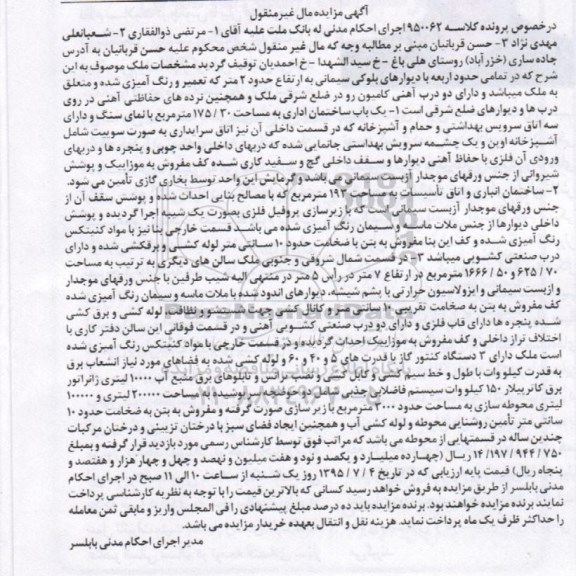 آگهی مزایده مال غیر منقول
در خصوص پرونده کلاسه ۹۵۰۰۶۲ اجرای احکام مدنی له بانک ملت علیه آقای ۱- مرتضی ذوالفقاری ۲- شعبانعلی
مهدی نژاد ۳- حسن قربانیان مبنی بر مطالبه وجه که مال غیر منقول شخص محکوم علیه حسن قربانیان به آدرس
جاده ساری (خزرآباد) روستای هلی باغ - خ سید الشهدا - خ احمدیان توقیف گردید مشخصات ملک موصوف به این
شرح که در تمامی حدود اربعه با دیوارهای بلوکی سیمانی به ارتفاع حدود ۲ متر که تعمیر و رنگ آمیزی شده و متعلق
به ملک میباشد و دارای دو درب آهنی کامیون رو در ضلع شرقی ملک و همچنین نرده های حفاظتی آهنی در روی
درب ها و دیوارهای ضلع شرقی است ۱- یک باب ساختمان اداری به مساحت ۳۰ / ۱۷۵ مترمربع با نمای سنگ و دارای
سه اتاق سرویس بهداشتی و حمام و آشپزخانه که در قسمت داخلی آن نیز اتاق سرایداری به صورت سوییت شامل
آشپزخانه اوپن و یک چشمه سرویس بهداشتی جانمایی شده که دربهای داخلی واحد چوبی و پنجره ها و دربهای
ورودی آن فلزی با حفاظ آهنی دیوارها و سقف داخلی گچ و سفید کاری شده کف مفروش به موزاییک و پوشش
شیروانی از جنس ورقهای موجدار آزبست سیمانی می باشد و گرمایش این واحد توسط بخاری گازی تأمین می شود.
۲- ساختمان انباری و اتاق تأسیسات به مساحت ۱۹۳ مترمربع که با مصالح بنایی احداث شده و پوشش سقف آن از
جنس ورقهای موجدار آزبست سیمانی است که با زیرسازی پروفیل فلزی بصورت یک شیبه اجرا گردیده و پوشش
داخلی دیوارها از جنس ملات ماسه و سیمان رنگ آمیزی شده می باشد قسمت خارجی بنا نیز با مواد کنیتکس
رنگ آمیزی شده و کف این بنا مفروش به بتن با ضخامت حدود ۱۰ سانتی متر لوله کشی و برقکشی شده و دارای
درب صنعتی کشویی میباشد ۳- در قسمت شمال شروقی و جنوبی ملک سالن های دیگری به ترتیب به مساحت
۷۰ / ۶۲۵ و ۵۰ / ۱۶۶۶ مترمربع در ارتفاع ۷ متر در راس ۵ متر در منتهی الیه شیب طرفین با جنس ورقهای موجدار
و ازبست سیمانی و ایزولاسیون حرارتی با پشم شیشه، دیوارهای اندود شده با ملات ماسه و سیمان رنگ آمیزی شده
کف مفروش به بتن به ضخامت تقریبی سانتی متر و کانال کشی جهت شستشو و نظافت لوله کشی و برق کشی
شده پنجره ها دارای قاب فلزی و دارای دو درب صنعتی کشویی آهنی و در قسمت فوقانی این سالن دفتر کاری با
اختلاف تراز داخلی و کف مفروش به موزاییک احداث گردیده و در قسمت خارجی با مواد کنیتکس رنگ آمیزی شده
است ملک دارای ۳ دستگاه کنتور گاز با قدرت های ۵ و ۴۰ و ۶۰ و لوله کشی شده به فضاهای مورد نیاز انشعاب برق
به قدرت کیلو وات با طول و خط سیم کشی و کابل کشی و نصب ترانس و تابلوهای برق منبع آب ۱۰۰۰۰ لیتری ژانراتور
برق کاترپیلار ۱۵۰ کیلو وات سیستم فاضلاب جذبی مساحت ۲۰۰۰۰۰ لیتری و ۱۰۰۰۰۰
لیتری محوطه سازی به مساحت حدود ۳۰۰۰ مترمربع با زیر سازی صورت گرفته و مفروش به بتن به ضخامت حدود ۱۰
سانتی متر تأمین روشنایی محوطه و لوله کشی آب و همچنین ایجاد فضای سبز با درختان تزیینی و درختان مرکبات
چندین ساله در قسمتهایی از محوطه می باشد که مراتب فوق توسط کارشناس رسمی مورد بازدید قرار گرفته و بمبلغ
۷۵۰ / ۹۴۴ / ۱۹۷/ ۱۴ ریال (چهارده میلیارد و یکصد و نود و هفت میلیون و نهصد و چهل و چهار هزار و هفتصد و
پنجاه ریال) قیمت پایه ارزیابی که در تاریخ ۴ / ۷ / ۱۳۹۵ روز یک شنبه از ساعت ۱۰ الی ۱۱ صبح در اجرای احکام
مدنی بابلسر از طریق مزایده به فروش خواهد رسید کسانی که بالاترین قیمت را با توجه به نظریه کارشناسی پرداخت
نمایند برنده مزایده خواهند بود. برنده مزایده باید ده درصد مبلغ پیشنهادی را فی المجلس واریز و مابقی ثمن معامله
را حداکثر ظرف یک ماه پرداخت نماید. هزینه نقل و انتقال بعهده خریدار مزایده می باشد.
مدیر اجرای احکام مدنی بابلسر